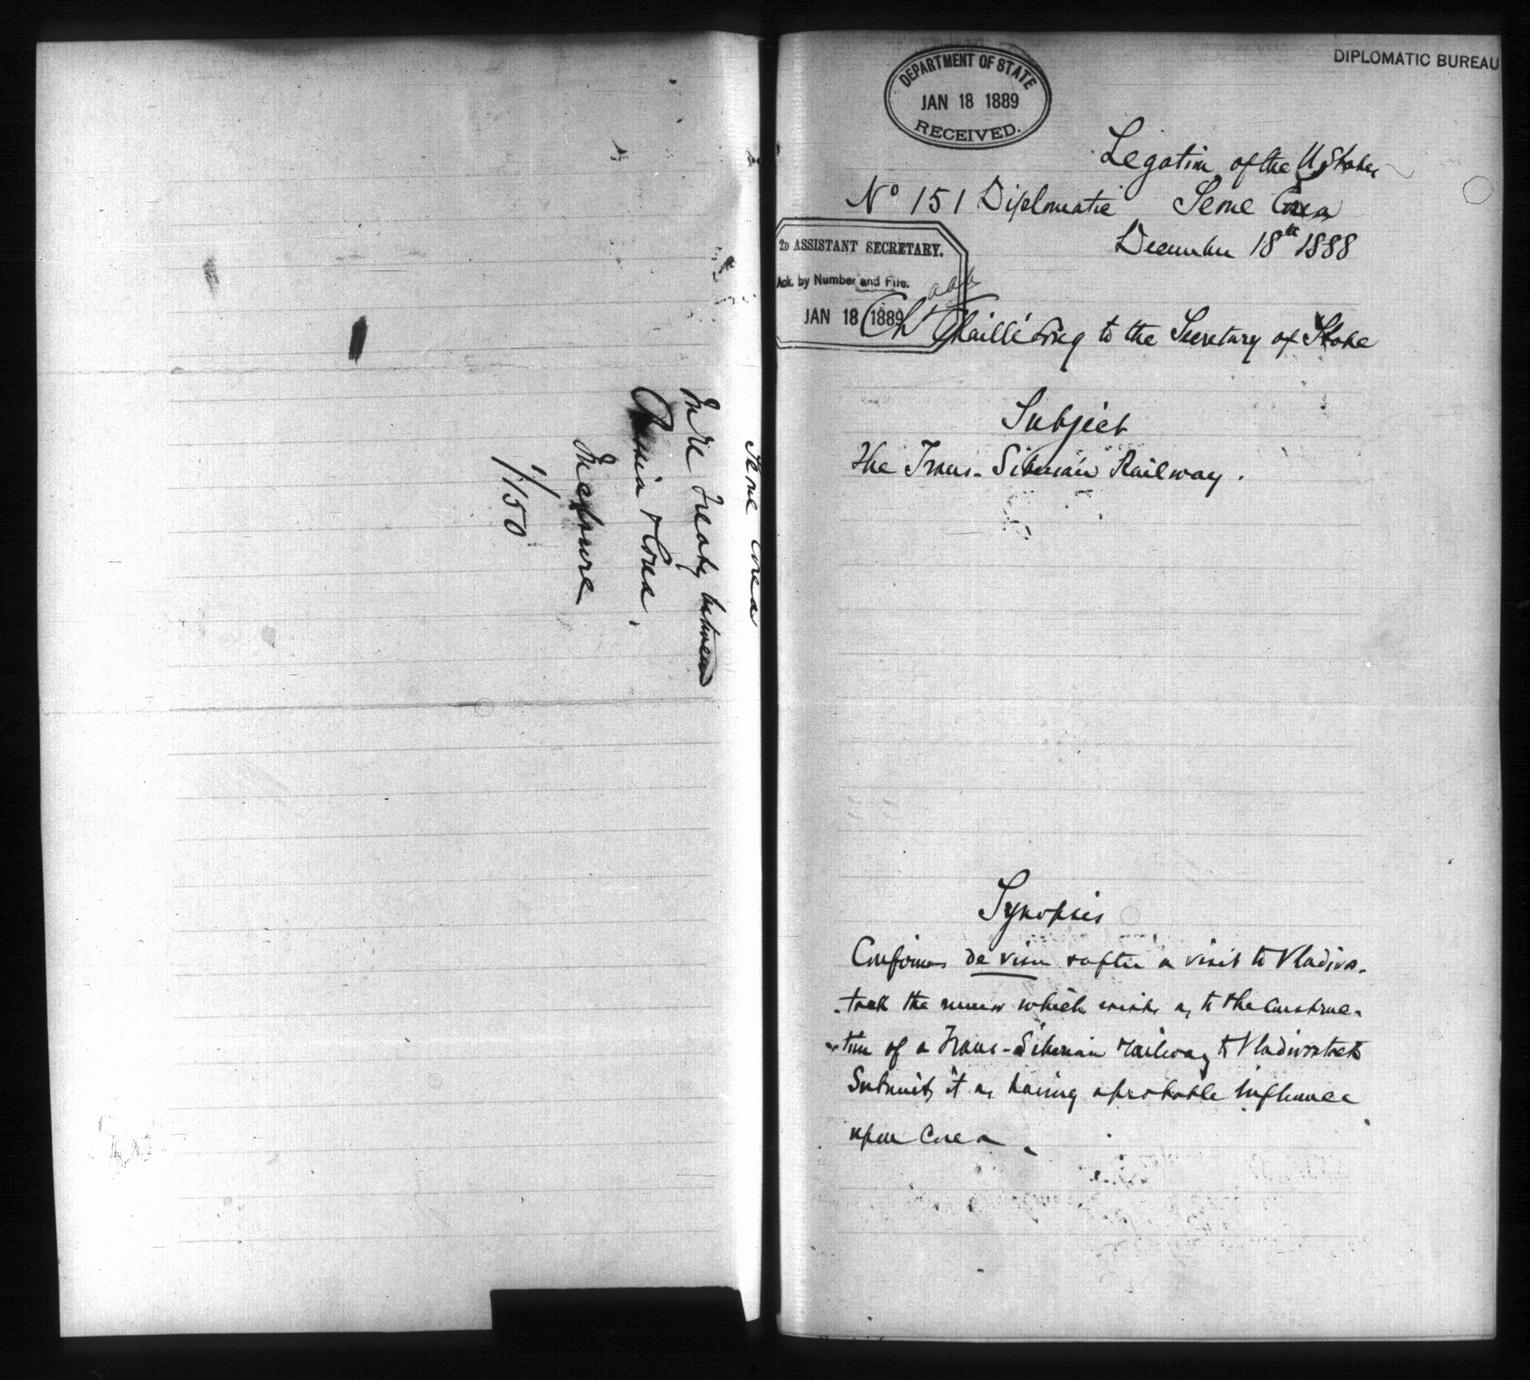 Seoul Corea
In re Treaty between
Russia & Corea.
Inclosure
1/150
DIPLOMATIC BUREAU
DEPARTMENT OF STATE
JAN 18 1889
RECEIVED.
Legation of the U States
No 151 Diplomatic Seoul Corea
December 18th 1888
2D ASSISTANT SECRETARY.
Ack. by Number and File.
JAN 18 1889
Chaillé Long to the Secretary of State
Subject
The Trans-Siberian Railway.
Synopsis
Confirms de visu & after a visit to Vladivos-
-tock the rumor which exists as to the construc-
-tion of a Trans-Siberian railway to Vladivostock
Submits it as having a probable influence
upon Corea.